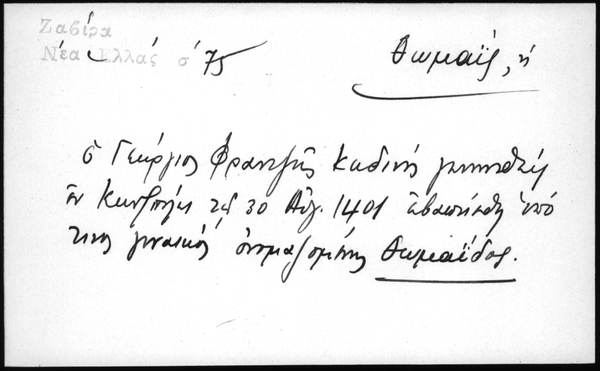 Ζαβίρα
Νέα Ελλάς σ 75
Θωμαΐς, ἡ
ὁ Γεώργιος Φραντζῆς γεννηθείς
ἐν Κωνπόλει τῇ 30 Αὐγ. 1401 ἐβαπτίσθη ὑπό
τινος γυναικός ὀνομαζομένης Θωμαΐδος.